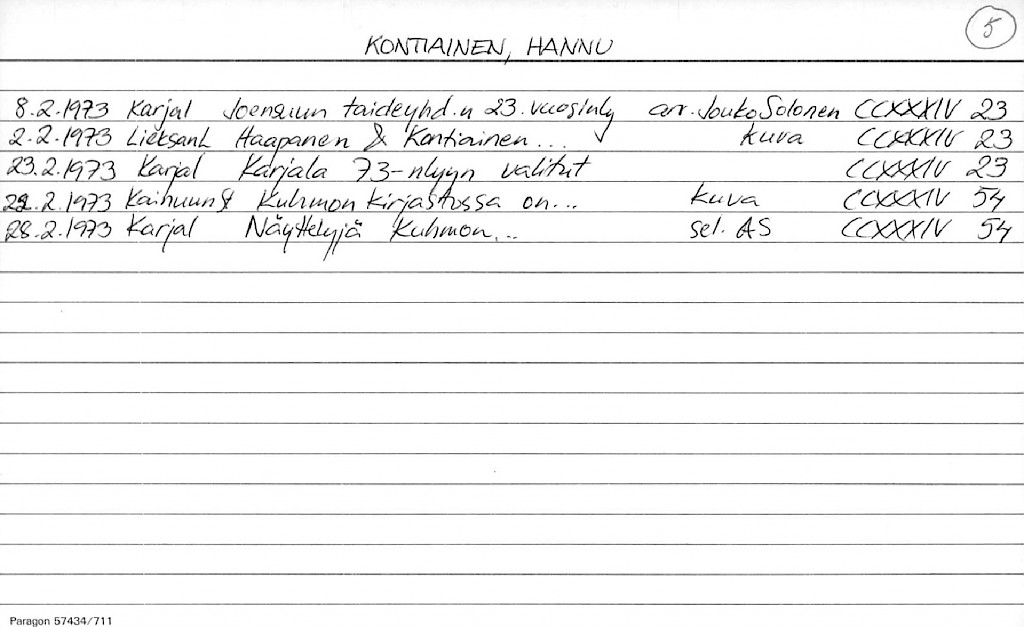 5
KONTIAINEN, HANNU
8.2.1973 Karjal Joensuun taideyhd.n 23. vuosinly arv. Jouko Solonen CCXXXIV 23
2.2.1973 LieksanL Haapanen & Kontiainen... kuva CCXXXIV 23
23.2.1973 Karjal Karjala 73-nlyyn valitut CCXXXIV 23
22.2.1973 KainuunS Kuhmon kirjastossa on... kuva CCXXXIV 54
28.2.1973 Karjal Näyttelyjä Kuhmon... sel. AS CCXXXIV 54
Paragon 57434/711